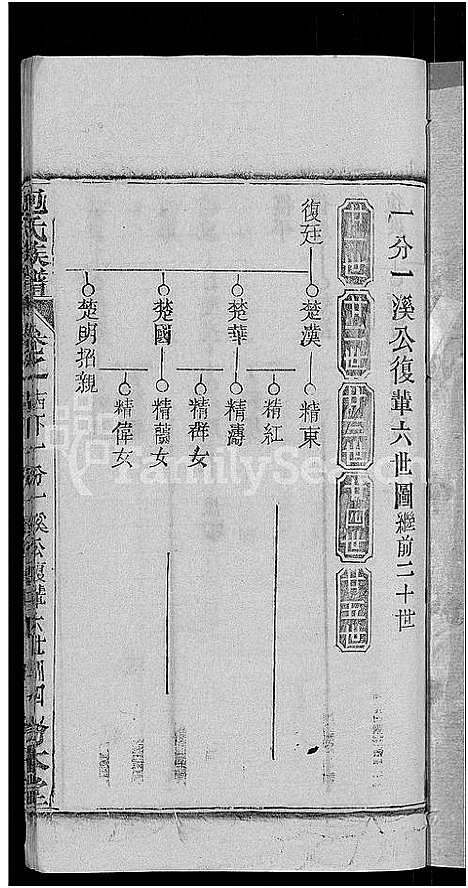 一分一溪公復輩六世圖繼前二十世
廿一世
廿二世
廿三世
廿四世
廿五世
復廷
楚漢
精東
精紅
楚華
精濤
精群女
楚國
精蘭女
精偉女
楚明招親
氏族譜
卷之一
一分一溪公復輩六世
FamilySearch